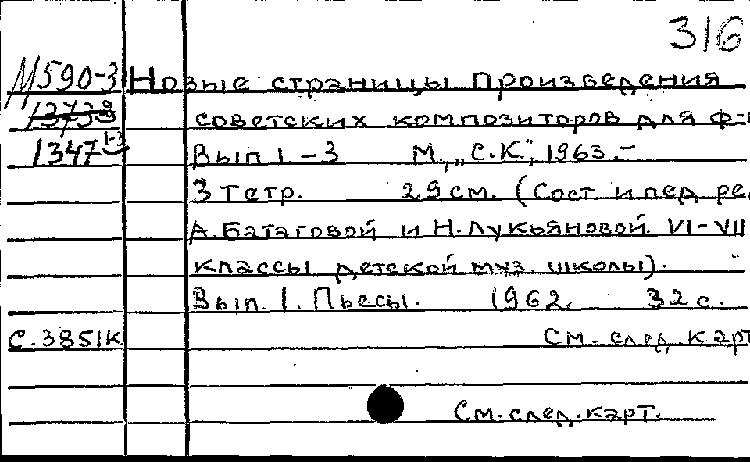 316
М590-3 Новые страницы Произведения
13733 советских композиторов для ф-
1347 1-3 Вып 1-3 М., „С.К.", 1963.-
3 тетр. 29 см. (Сост и пед ре
А. Батаговой и Н. Лукьяновой. VI-VII
классы детской муз. школы).
Вып. 1. Пьесы. 1962. 32 с.
С.3851к См. след. карт
См. след. карт.